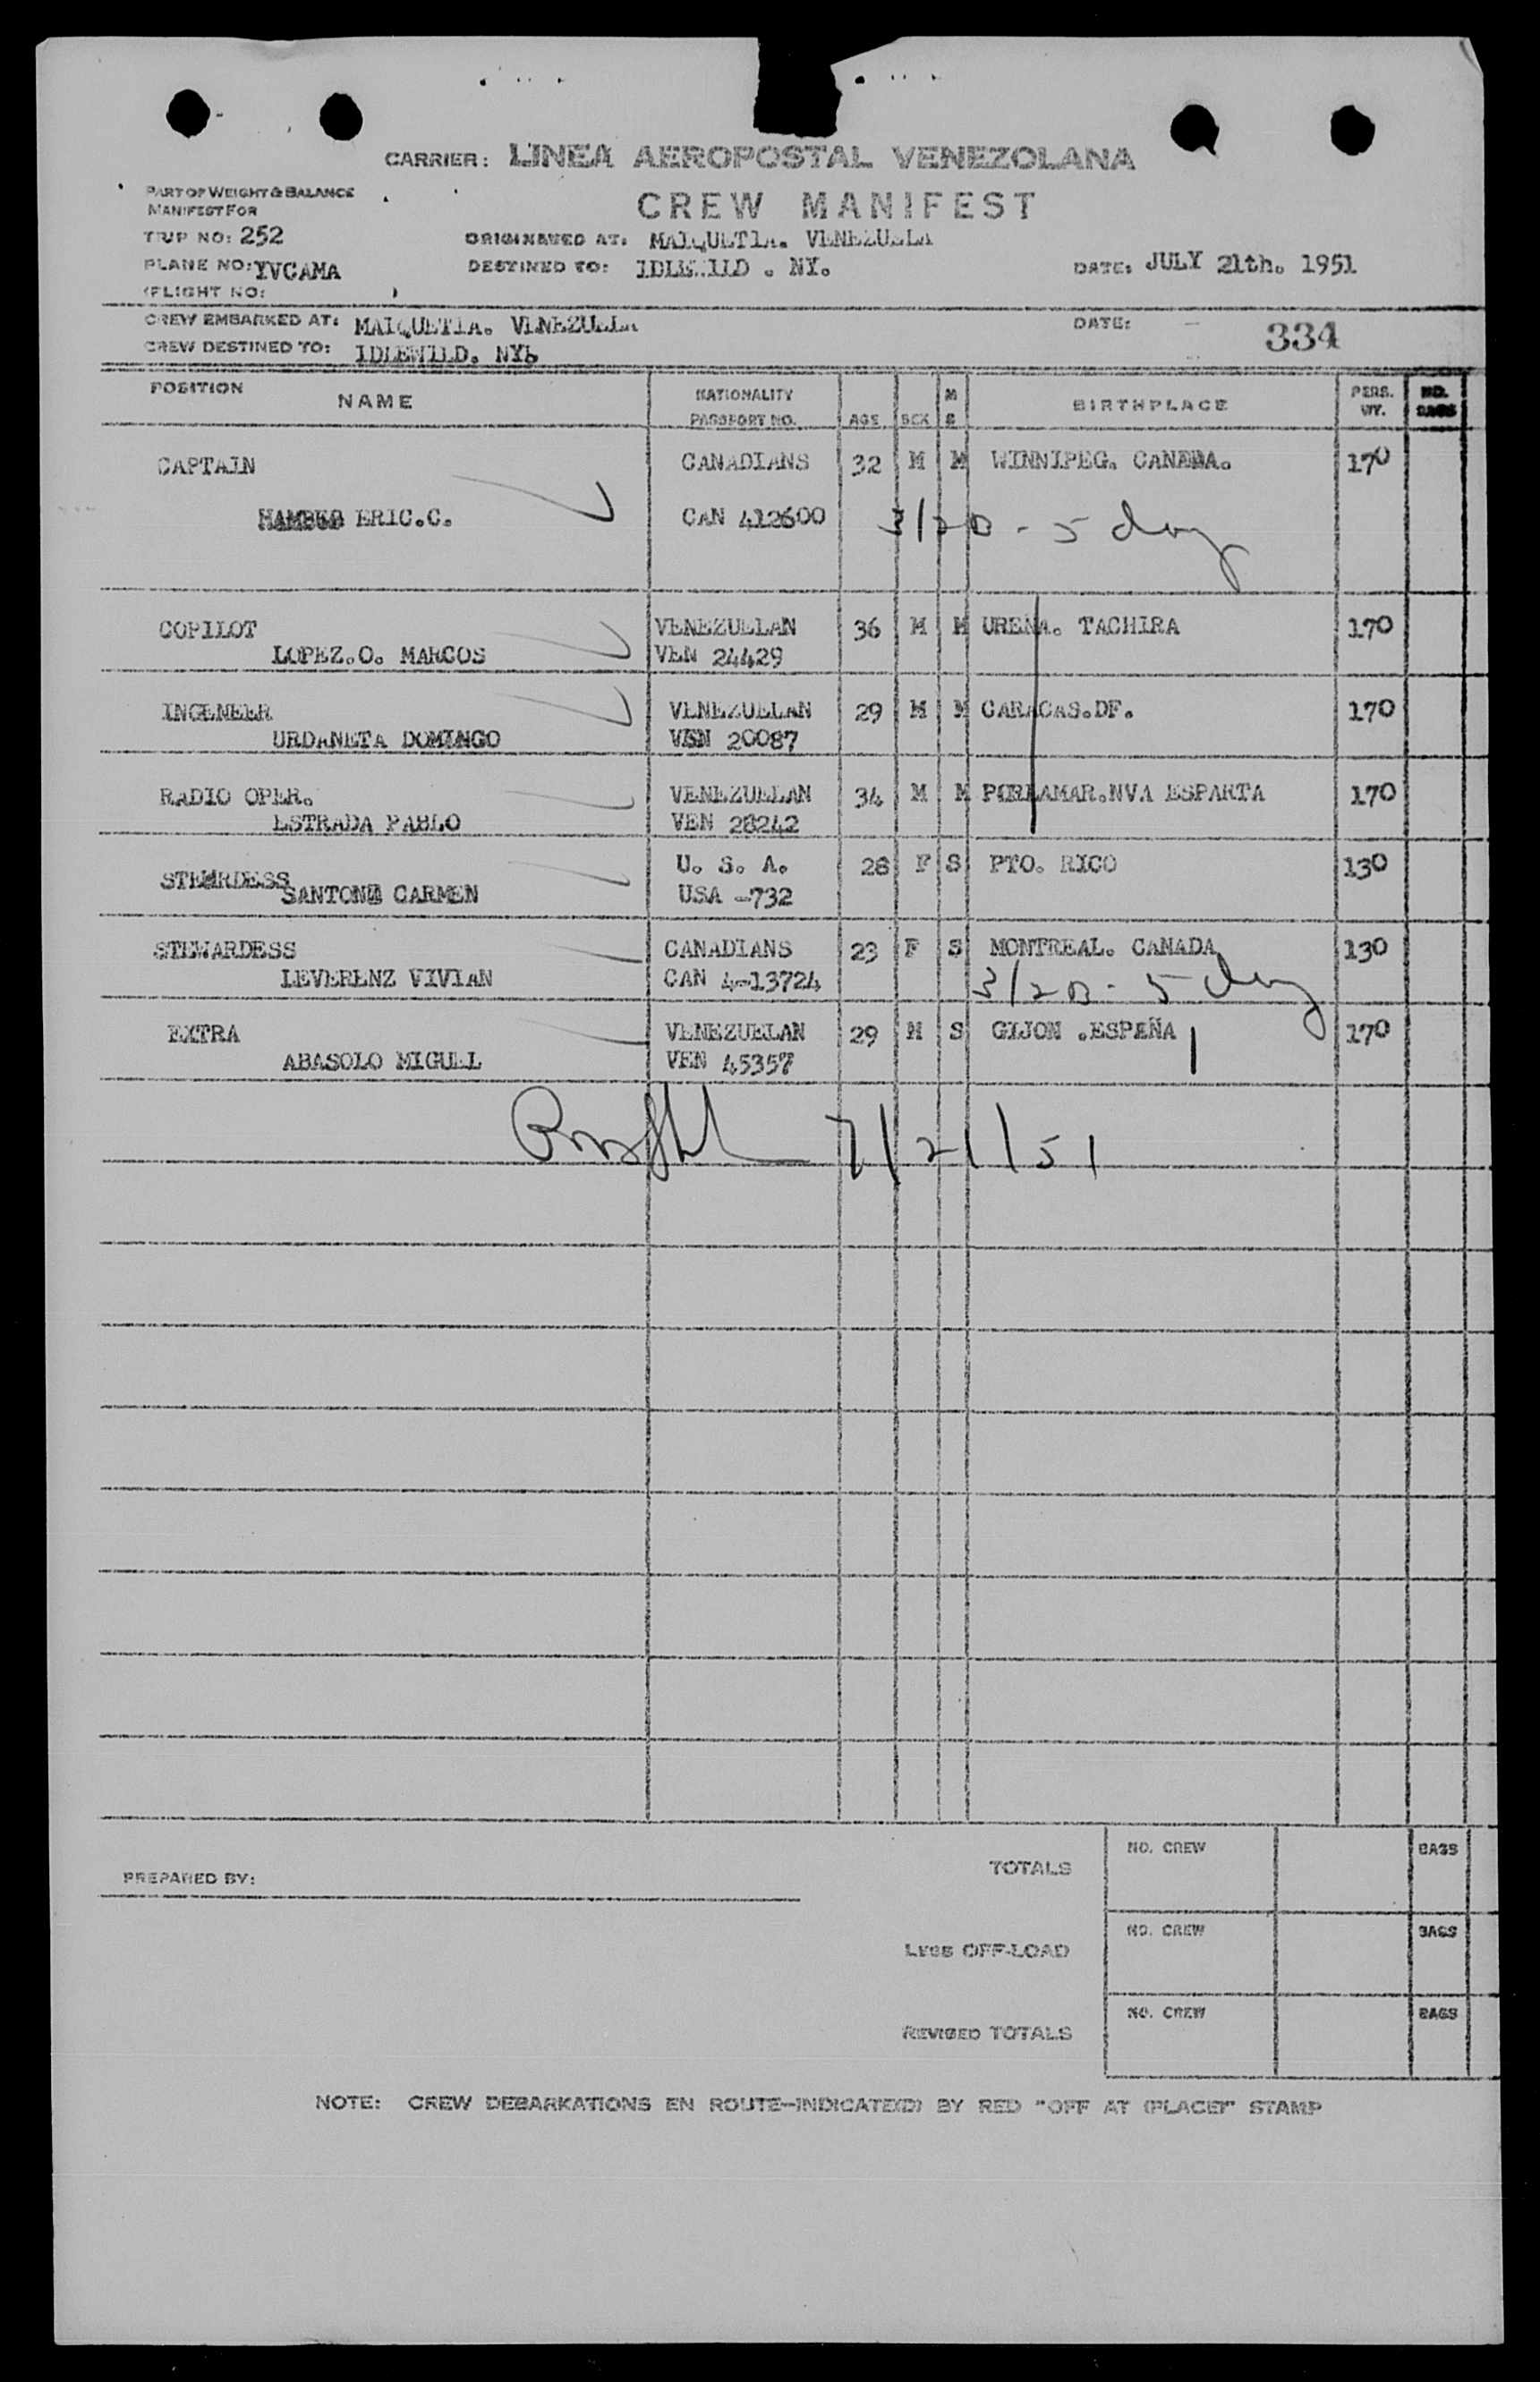 CARRIER: LINEA AEROPOSTAL VENEZOLANA
PART OF WEIGHT & BALANCE
MANIFEST FOR
CREW MANIFEST
TRIP NO: 252 ORIGINATED AT: MAIQUETIA. VENEZUELA
PLANE NO: YVCAMA DESTINED TO: IDLEWILD . NY. DATE: JULY 21th. 1951
(FLIGHT NO: )
CREW EMBARKED AT: MAIQUETIA. VENEZUELA DATE: - 334
CREW DESTINED TO: IDLEWILD. NY
POSITION NAME NATIONALITY PASSPORT NO. AGE SEX M S BIRTHPLACE PERS. WT. NO. BAGS
CAPTAIN CANADIANS 32 M M WINNIPEG. CANADA. 170
ERIC.C. CAN 412600 3/20 - 5 day
COPILOT VENEZUELAN 36 M M UREÑA. TACHIRA 170
LOPEZ.O. MARCOS VEN 24429
INGENEER VENEZUELAN 29 M M CARACAS.DF. 170
URDANETA DOMINGO VEN 20087
RADIO OPER. VENEZUELAN 34 M M PORLAMAR.NVA ESPARTA 170
ESTRADA PABLO VEN 28242
STEWRDESS U. S. A. 28 F S PTO. RICO 130
SANTONI CARMEN USA -732
STEWARDESS CANADIANS 23 F S MONTREAL. CANADA 130
LEVERENZ VIVIAN CAN 4-13724 3/20 - 5 day
EXTRA VENEZUELAN 29 M S GIJON .ESPAÑA 170
ABASOLO MIGUEL VEN 45357
7/21/51
PREPARED BY: TOTALS NO. CREW BAGS
LESS OFF-LOAD NO. CREW BAGS
REVISED TOTALS NO. CREW BAGS
NOTE: CREW DEBARKATIONS EN ROUTE-INDICATE(D) BY RED "OFF AT (PLACE)" STAMP